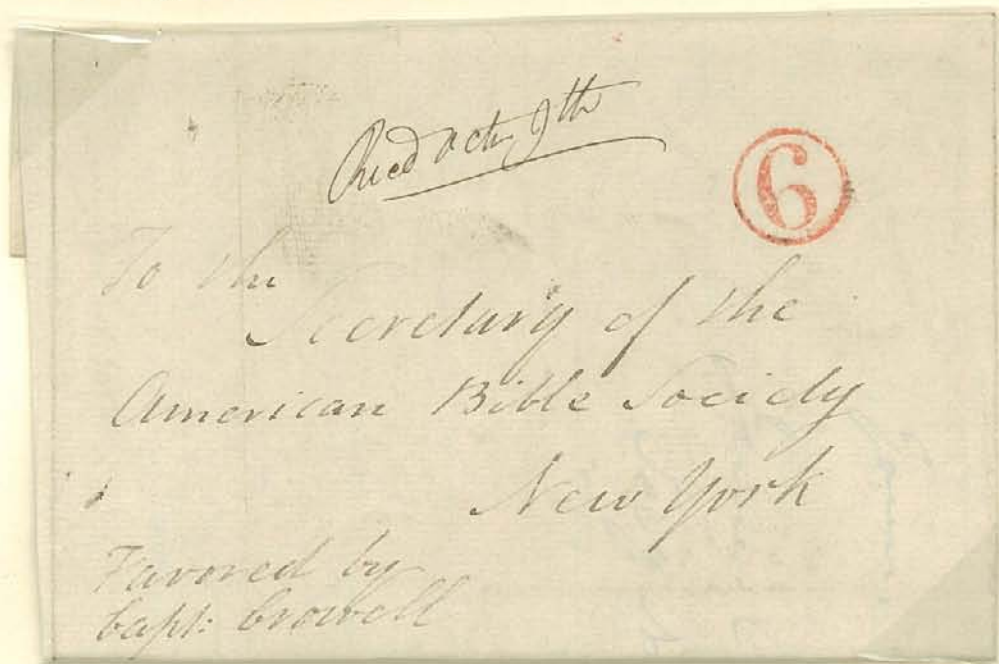 Recd Oct 9th
6
To the
Secretary of the
American Bible Society
New York
Favored by
Capt: Crowell